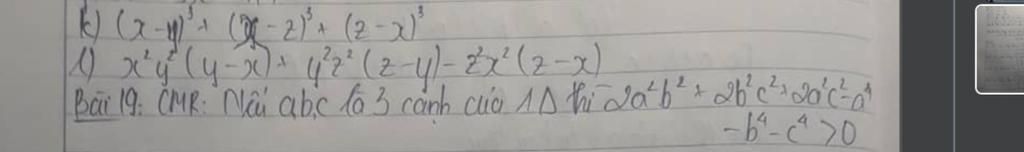 k) (x-y)³ + (y-z)³ + (z-x)³
l) x²y²(y-x) + y²z²(z-y) - z²x²(z-x)
Bài 19: CMR: Nếu a,b,c là 3 cạnh của 1Δ thì 2a²b² + 2b²c² + 2a²c² - a⁴
- b⁴ - c⁴ > 0